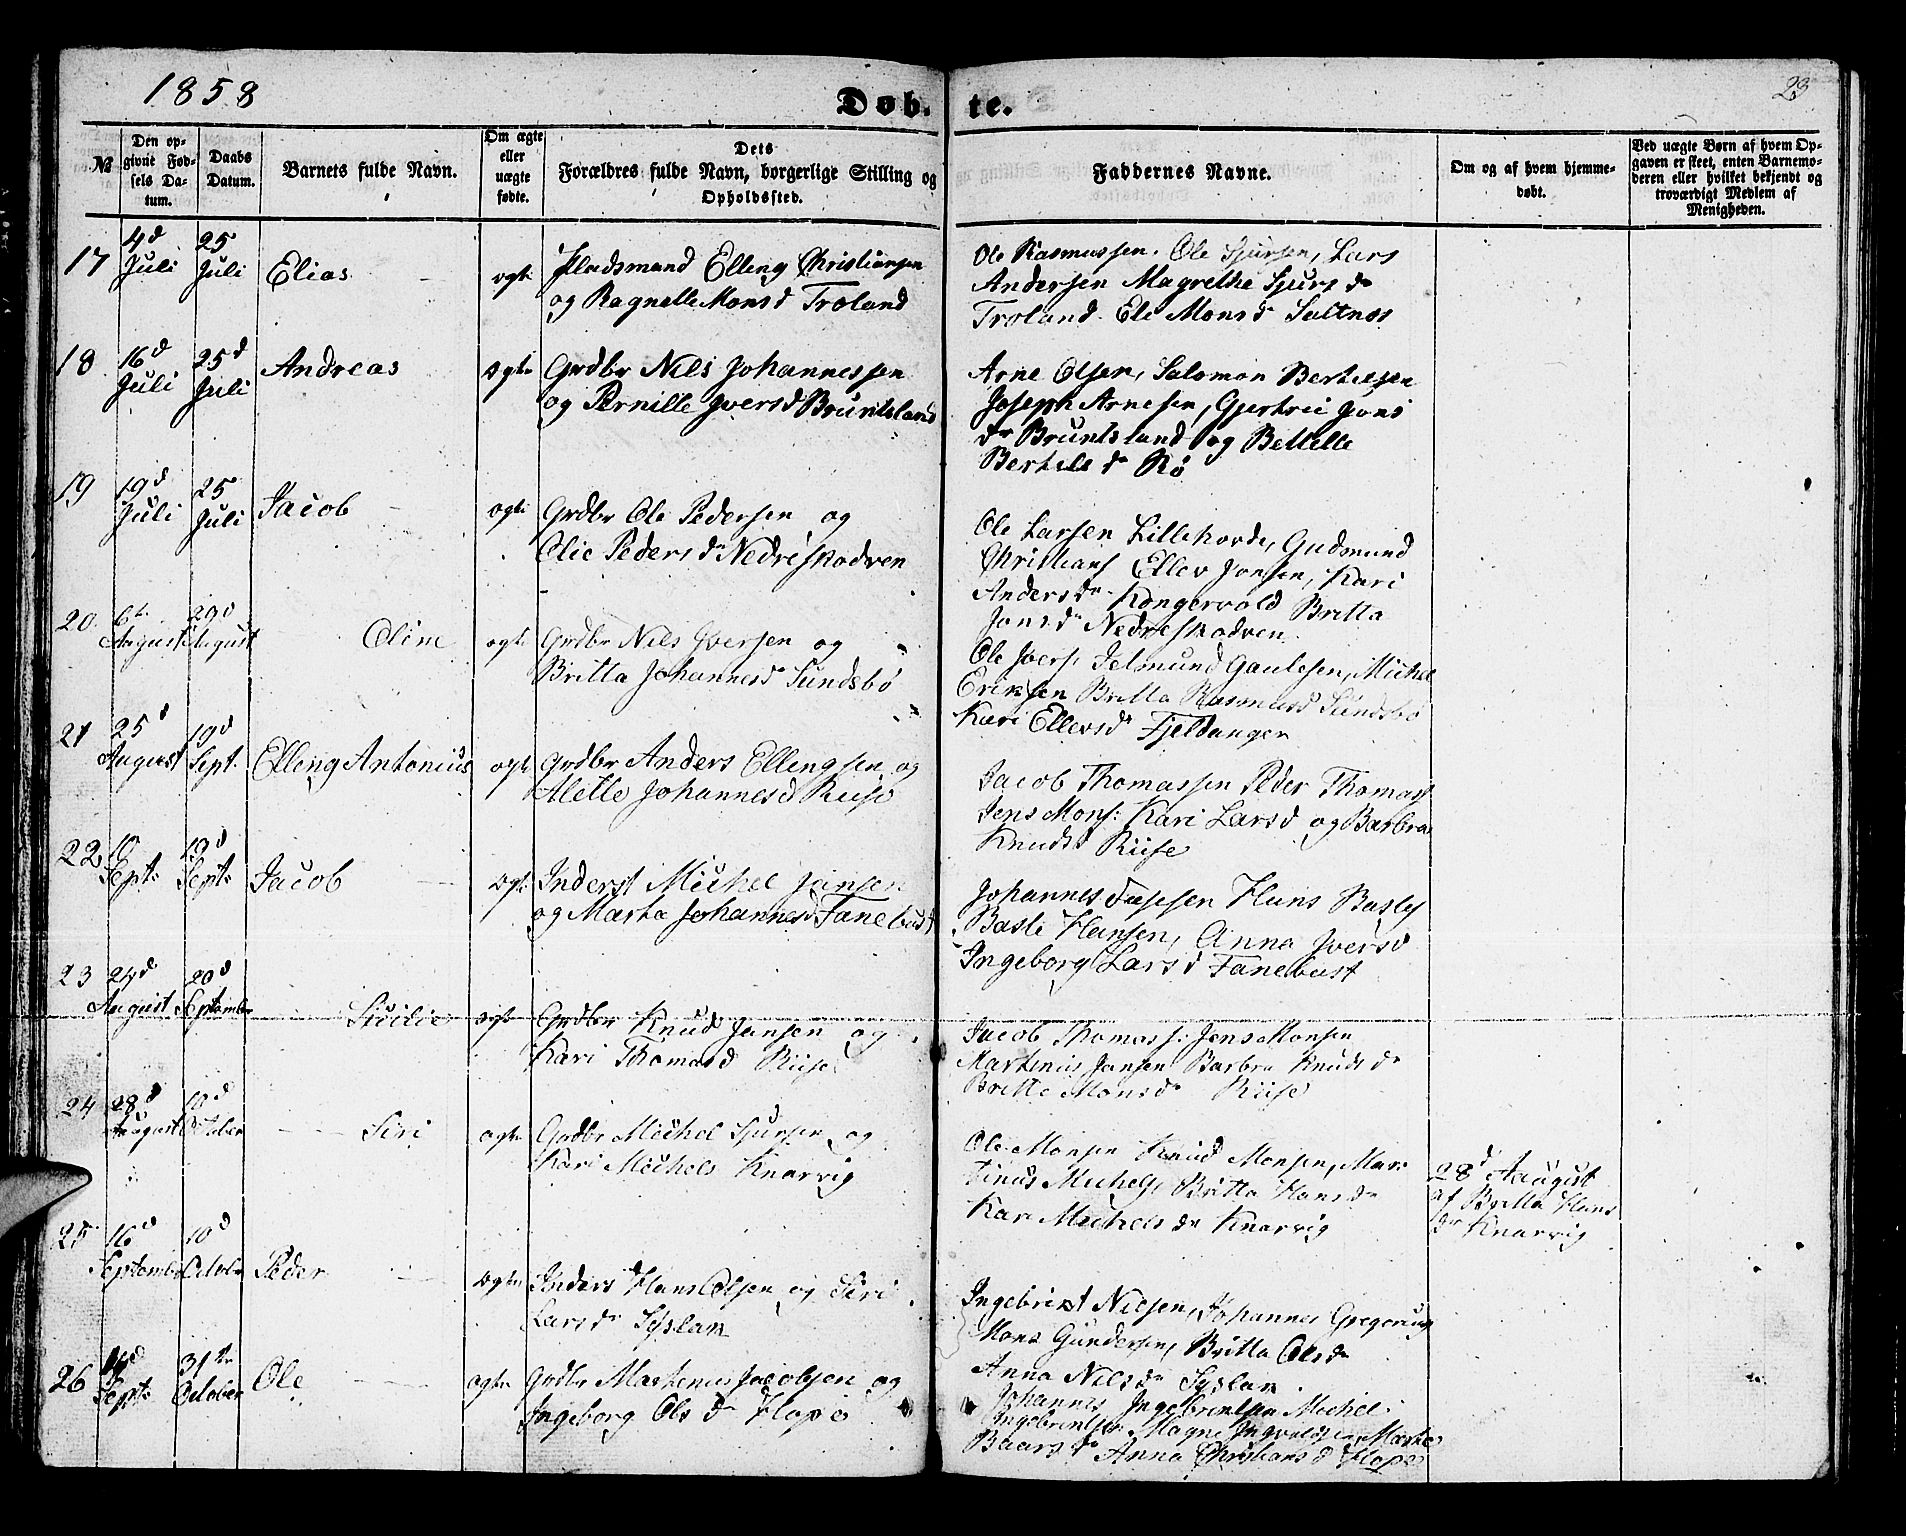 1858
Døb-
te.
23
№
Den op-
givne Fød-
sels Da-
tum.
Daabs
Datum.
Barnets fulde Navn.
Om ægte
eller
uægte
fødte.
Dets
Forældres fulde Navn, borgerlige Stilling og
Opholdssted.
Faddernes Navne.
Om og af hvem hjemme-
døbt.
Ved uægte Børn af hvem Op-
gaven er skeet, enten Barnemo-
deren eller hvilket bekjendt og
troværdigt Medlem af
Menigheden.
17
4d
Juli
25
Juli
Elias
Pladsmand Elling Christiansen
og Ragnelle Monsd Troland
Ole Rasmussen, Ole Sjursen, Lars
Andersen Magrethe Sjurs dr
Troland. Ele Mons dr Saltnes
18
16d
Juli
25d
Juli
Andreas
Grdbr Nils Johannessen
og Pernille Iversd Bruntsland
Arne Olsen, Salomon Bertelsen
Joseph Arnesen, Gjertrie Jons
dr Bruntsland og Bettelle
Bertels dr Rø
19
19d
Juli
25
Juli
Jacob
Grdbr Ole Pedersen og
Olie Peders dr Nedreskodven
Ole Larsen Lillehorde, Gudmund
Christians Ellev Jonsen, Kari
Anders dr Kongervold Britta
Jons dr Nedreskodven
20
6te
August
29d
August
Oline
Grdbr Nils Iversen og
Britta Johannesd Sundsbø
Ole Ivers. Gaulesen, Michel
Eriksen Britta Rasmusd Sundsbø
Kari Ellevsdr Fjeldanger
21
25d
August
19d
Sept.
Elling Antonius
Grdbr Anders Ellingsen og
Alette Johannesd Riise
Jacob Thomassen Peder Thomass
Jens Mons: Kari Larsd og Barbra
Knudsd Riise
22
10
Septr
19d
Septr
Jacob
Inderst Michel Jansen
og Marta Johannesd Fanebust
Johannes Hans Basles
Basle Hansen, Anna Iversd
Ingeborg Lars d Fanebust
23
24d
August
20d
September
Sicilie
Grdbr Knud Jansen og
Kari Thomasd Riise
Jacob Thomass: Jens Monsen
Martenius Jansen Barbra Knuds dr
Britte Monsdr Riise
24
28d
August
10d
October
Siri
Grdbr Michel Sjursen og
Kari Michels Knarvig
Ole Monsen Knud Monsen, Mar
tinus Michels, Britta Hansdr
Kari Michels dr Knarvig
28d Aaugust
af Britta Hans
dr Knarvig
25
16d
September
10d
Octobr
Peder
Hans Olsen og Siri
Lars dr Syslak
Ingebrikt Nilsen, Johannes Gregorius
Mons Gundersen, Britta Olsdr
Anna Nils dr Syslak
26
Septr
31te
October
Ole
Grdbr Martenus Jacobsen og
Ingeborg Ols dr Hopø
Johannes Ingebrigtsen Michel
Ingebrigtsen Magne Marte
Baars dr Anna Christians d Hopø